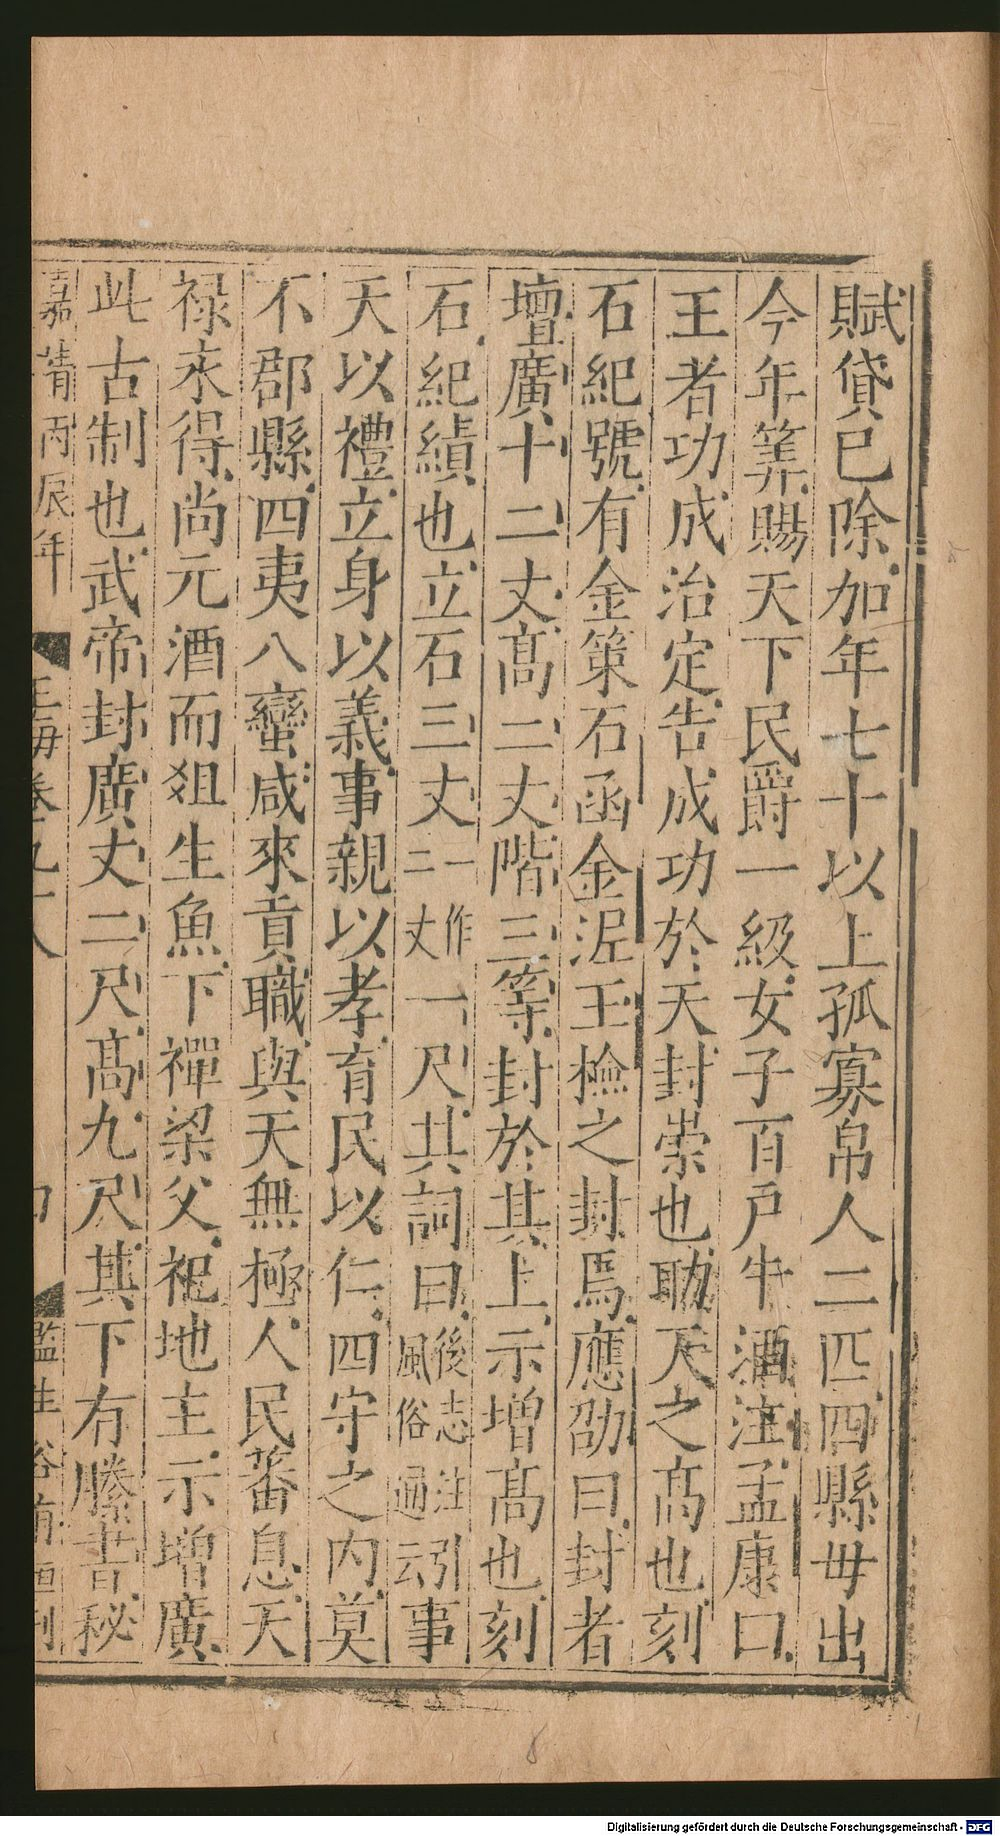 賦貸已除加年七十以上孤寡帛人二匹四縣毋出
今年筭賜天下民爵一級女子百戶牛酒注孟康曰
王者功成治定告成功於天封崇也助天之高也刻
石紀號有金策石函金泥玉檢之封焉應劭曰封者
壇廣十二丈高二丈階三等封於其上示增高也刻
石紀績也立石三丈一作二丈一尺其詞曰後志注引風俗通云事
天以禮立身以義事親以孝育民以仁四守之內莫
不郡縣四夷八蠻咸來貢職與天無極人民蕃息天
祿永得尚元酒而俎生魚下禪梁父祀地主示增廣
此古制也武帝封廣丈二尺高九尺其下有縢書秘
嘉靖丙辰年 玉海卷九十八 四 監生
Digitalisierung gefördert durch die Deutsche Forschungsgemeinschaft - DFG
8